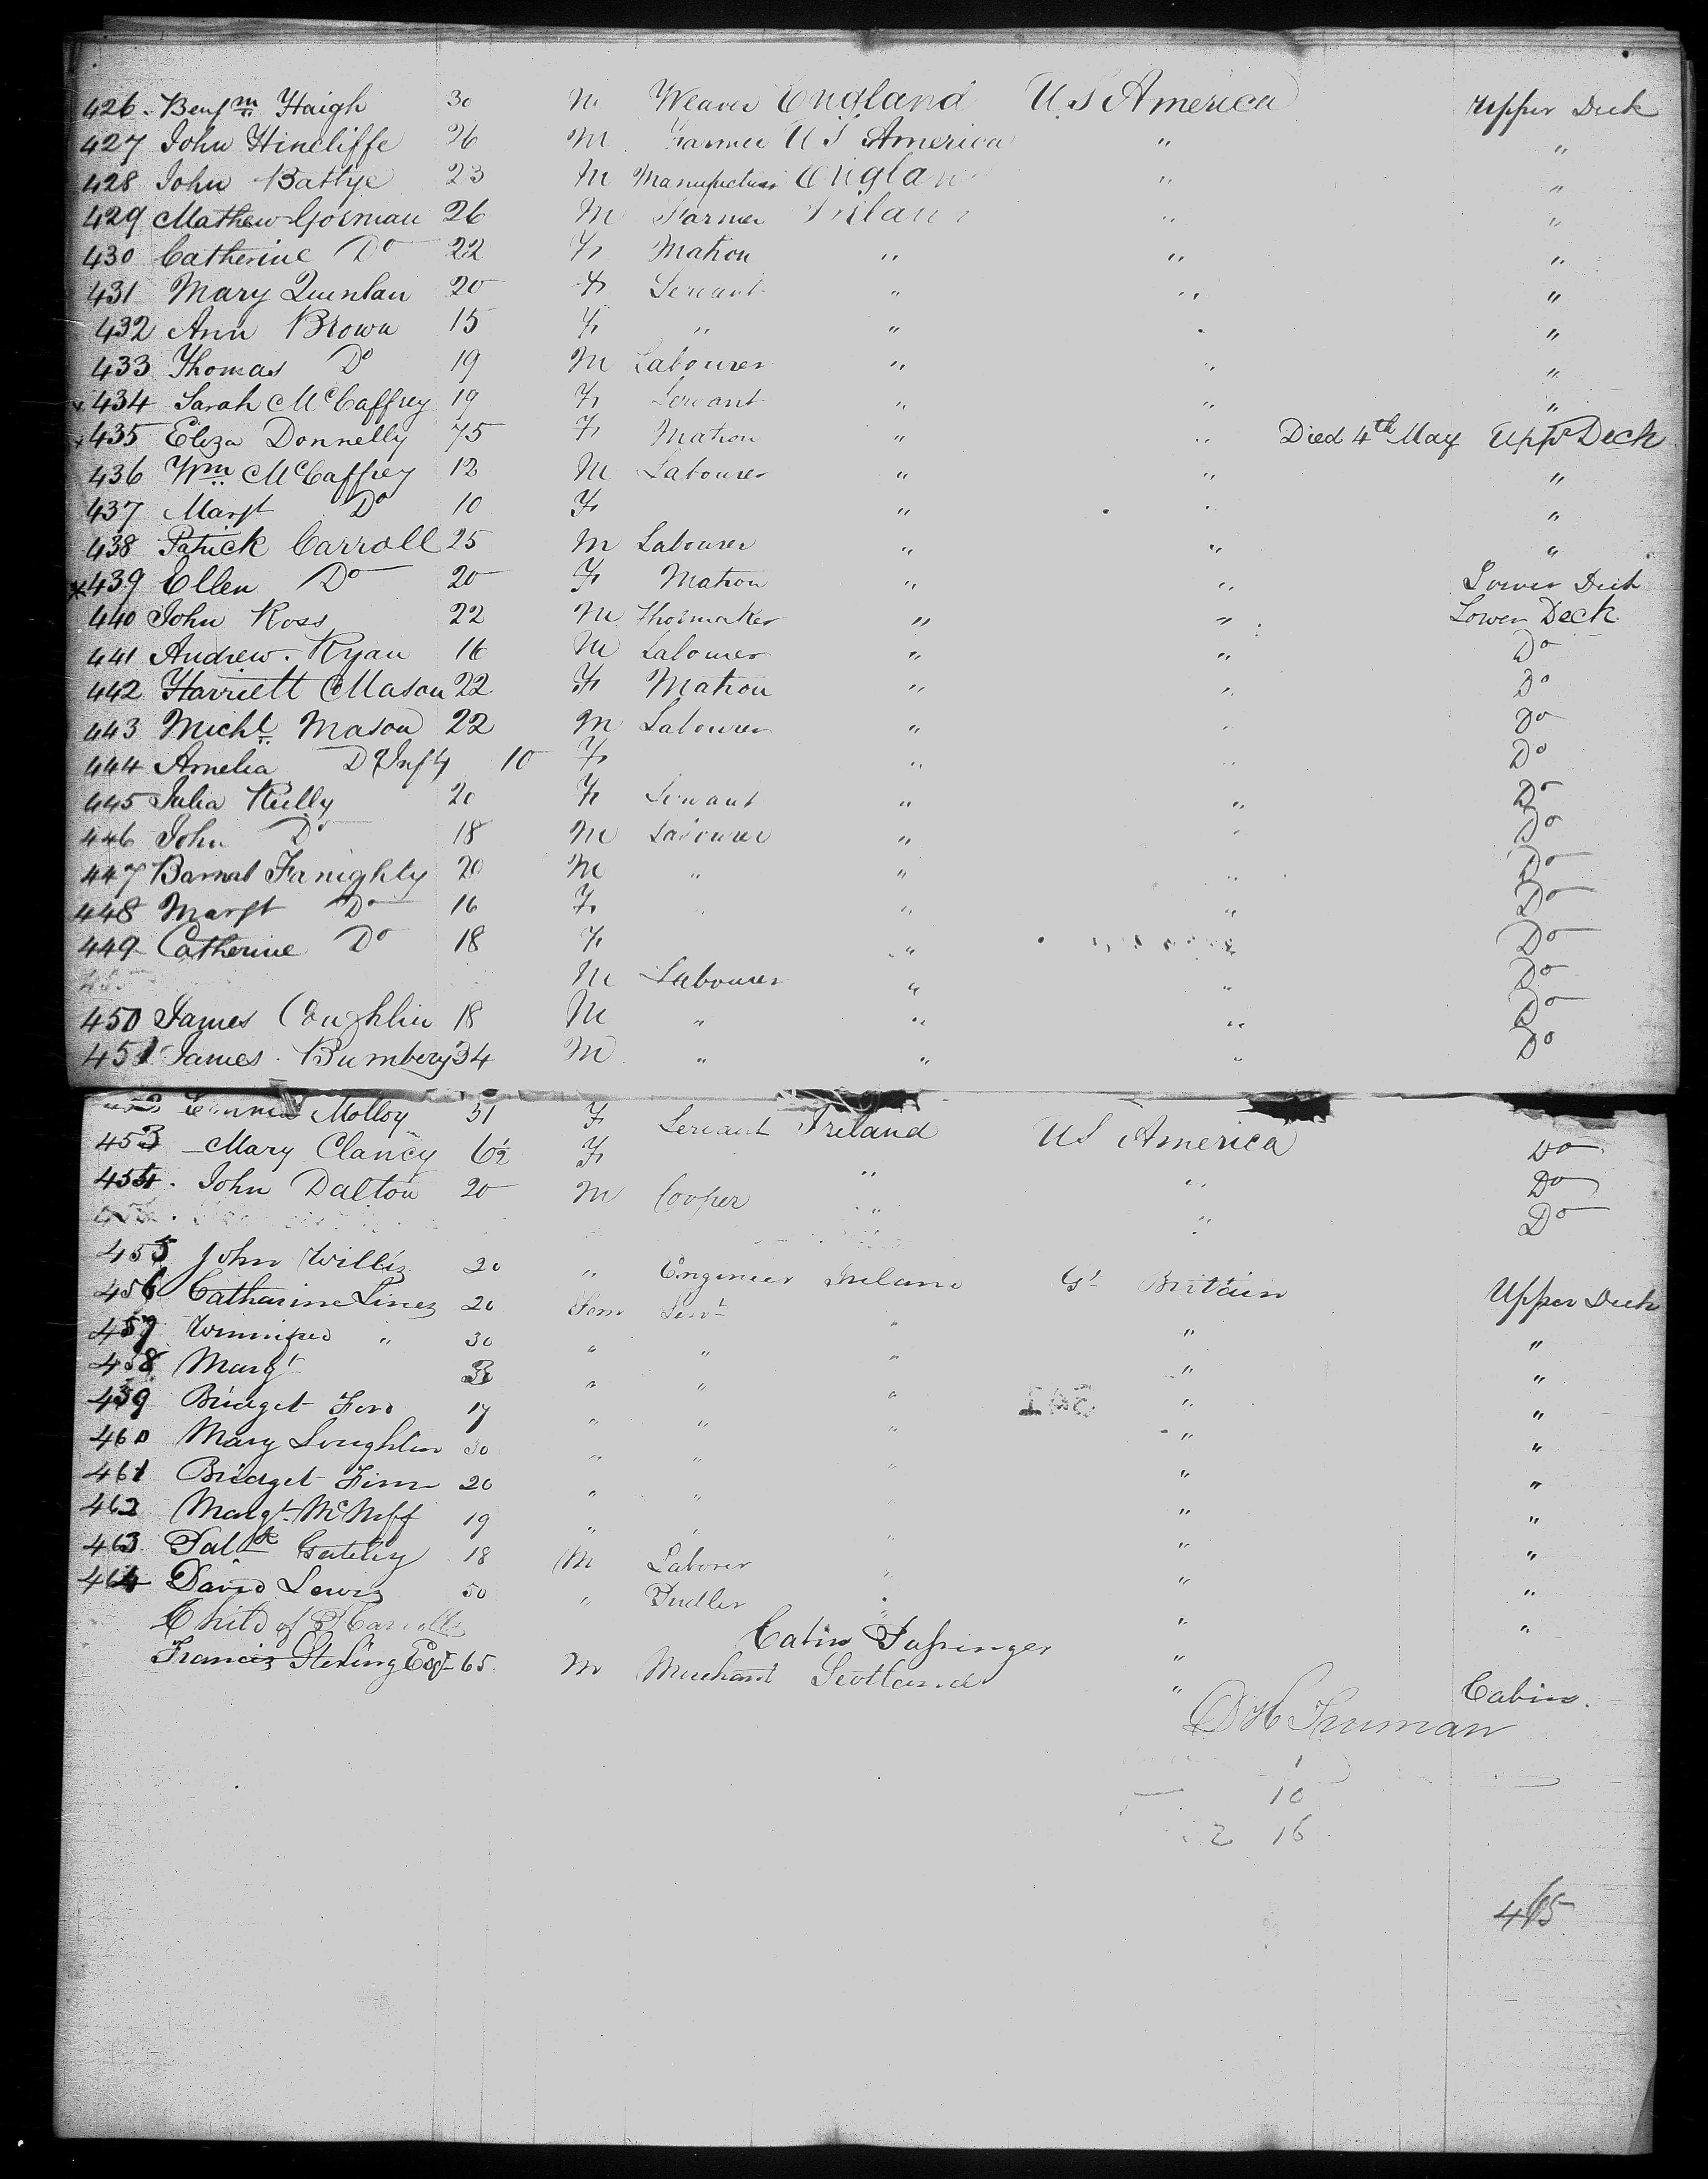 426. Benjm Haigh 30 M Weaver England U.S America Upper Deck
427 John Hincliffe 26 M Farmer U S America " "
428 John Battye 23 M Manufacturer England " "
429 Mathew Gorman 26 M Farmer Ireland " "
430 Catherine Do 22 F Matron " " "
431 Mary Quinlan 20 F Servant " " "
432 Ann Brown 15 F " " " "
433 Thomas Do 19 M Labourer " " "
434 Sarah McCaffrey 19 F Servant " " "
435 Eliza Donnelly 75 F Matron " " Died 4th May Uppr Deck
436 Wm McCaffrey 12 M Labourer " " "
437 Margt Do 10 F " " "
438 Patrick Carroll 25 M Labourer " " "
x439 Ellen Do 20 F Matron " " Lower Deck
440 John Ross 22 M Shoemaker " " Lower Deck
441 Andrew Ryan 16 M Labourer " " Do
442 Harriett Mason 22 F Matron " " Do
443 Michl Mason 22 M Labourer " " Do
444 Amelia Do Inft 10 F " " Do
445 Julia Kelly 20 F Servant " " Do
446 John Do 18 M Labourer " " Do
447 Barnat Fanighty 20 M " " " Do
448 Margt Do 16 F " " " Do
449 Catherine Do 18 F " " Do
M Labourer " " Do
450 James Coughlin 18 M " " " Do
451 James Bumbery 34 M " " " Do
Molloy 31 F Servant Ireland US America Do
453 Mary Clancy 6½ F " " Do
454. John Dalton 20 M Cooper " " Do
455 John Willis 20 " Engineer Ireland Gt Brittain Upper Deck
456 Catharine Lines 20 Fem Servt " " "
457 Winnifred " 30 " " " " "
458 Margt " " " " "
459 Bridget Ford 17 " " " " "
460 Mary Loughlin 30 " " " " "
461 Bridget Finn 20 " " " " "
462 Margt McNiff 19 " " " " "
463 Patk Gateley 18 M Laborer " " "
464 David Lewis 50 " Pudler " " "
Child of P Carroll
Cabin Passenger
Francis Sterling Esqr 65 M Merchant Scotland " Cabin.
D H Truman
1
10
2 16
465